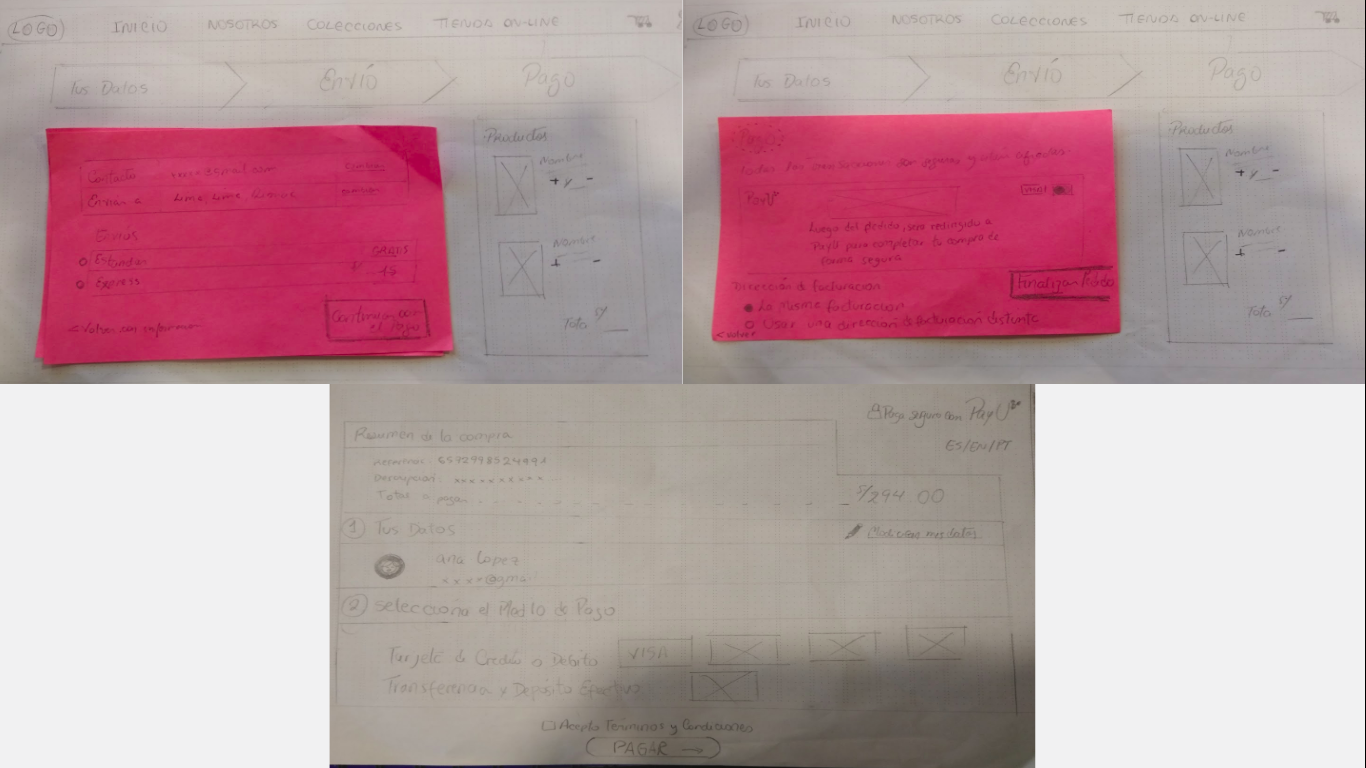 LOGO INICIO NOSOTROS COLECCIONES TIENDA ON-LINE
Tus Datos Envío Pago
Contacto
Enviar a Lima, Lima,
Envios
Estandar GRATIS
Express
<Volver
Continuar con
el pago
Productos
Nombre
+ -
Nombre
+ -
Total S/
LOGO INICIO NOSOTROS COLECCIONES TIENDA ON-LINE
Tus Datos Envío Pago
Pago
Todas las transacciones son seguras y están
PayU VISA
Luego del pedido, será redirigido a
PayU para completar tu compra de
forma segura
Dirección de facturación
Finalizar Pedido
La misma facturación
Usar una dirección de facturación distinta
<volver
Productos
Nombre
+ -
Nombre
+ -
Total S/
Pago seguro con PayU
ES/EN/PT
Resumen de la compra
Descripción: xxxxxxxxxx
Total a pagar S/294.00
1 Tus Datos
Modificar mis datos
ana Lopez
xxxx@gmai
2 Selecciona el Medio de Pago
Tarjeta de Crédito o Débito VISA
Transferencia y Depósito Efectivo
Acepto Términos y Condiciones
PAGAR →